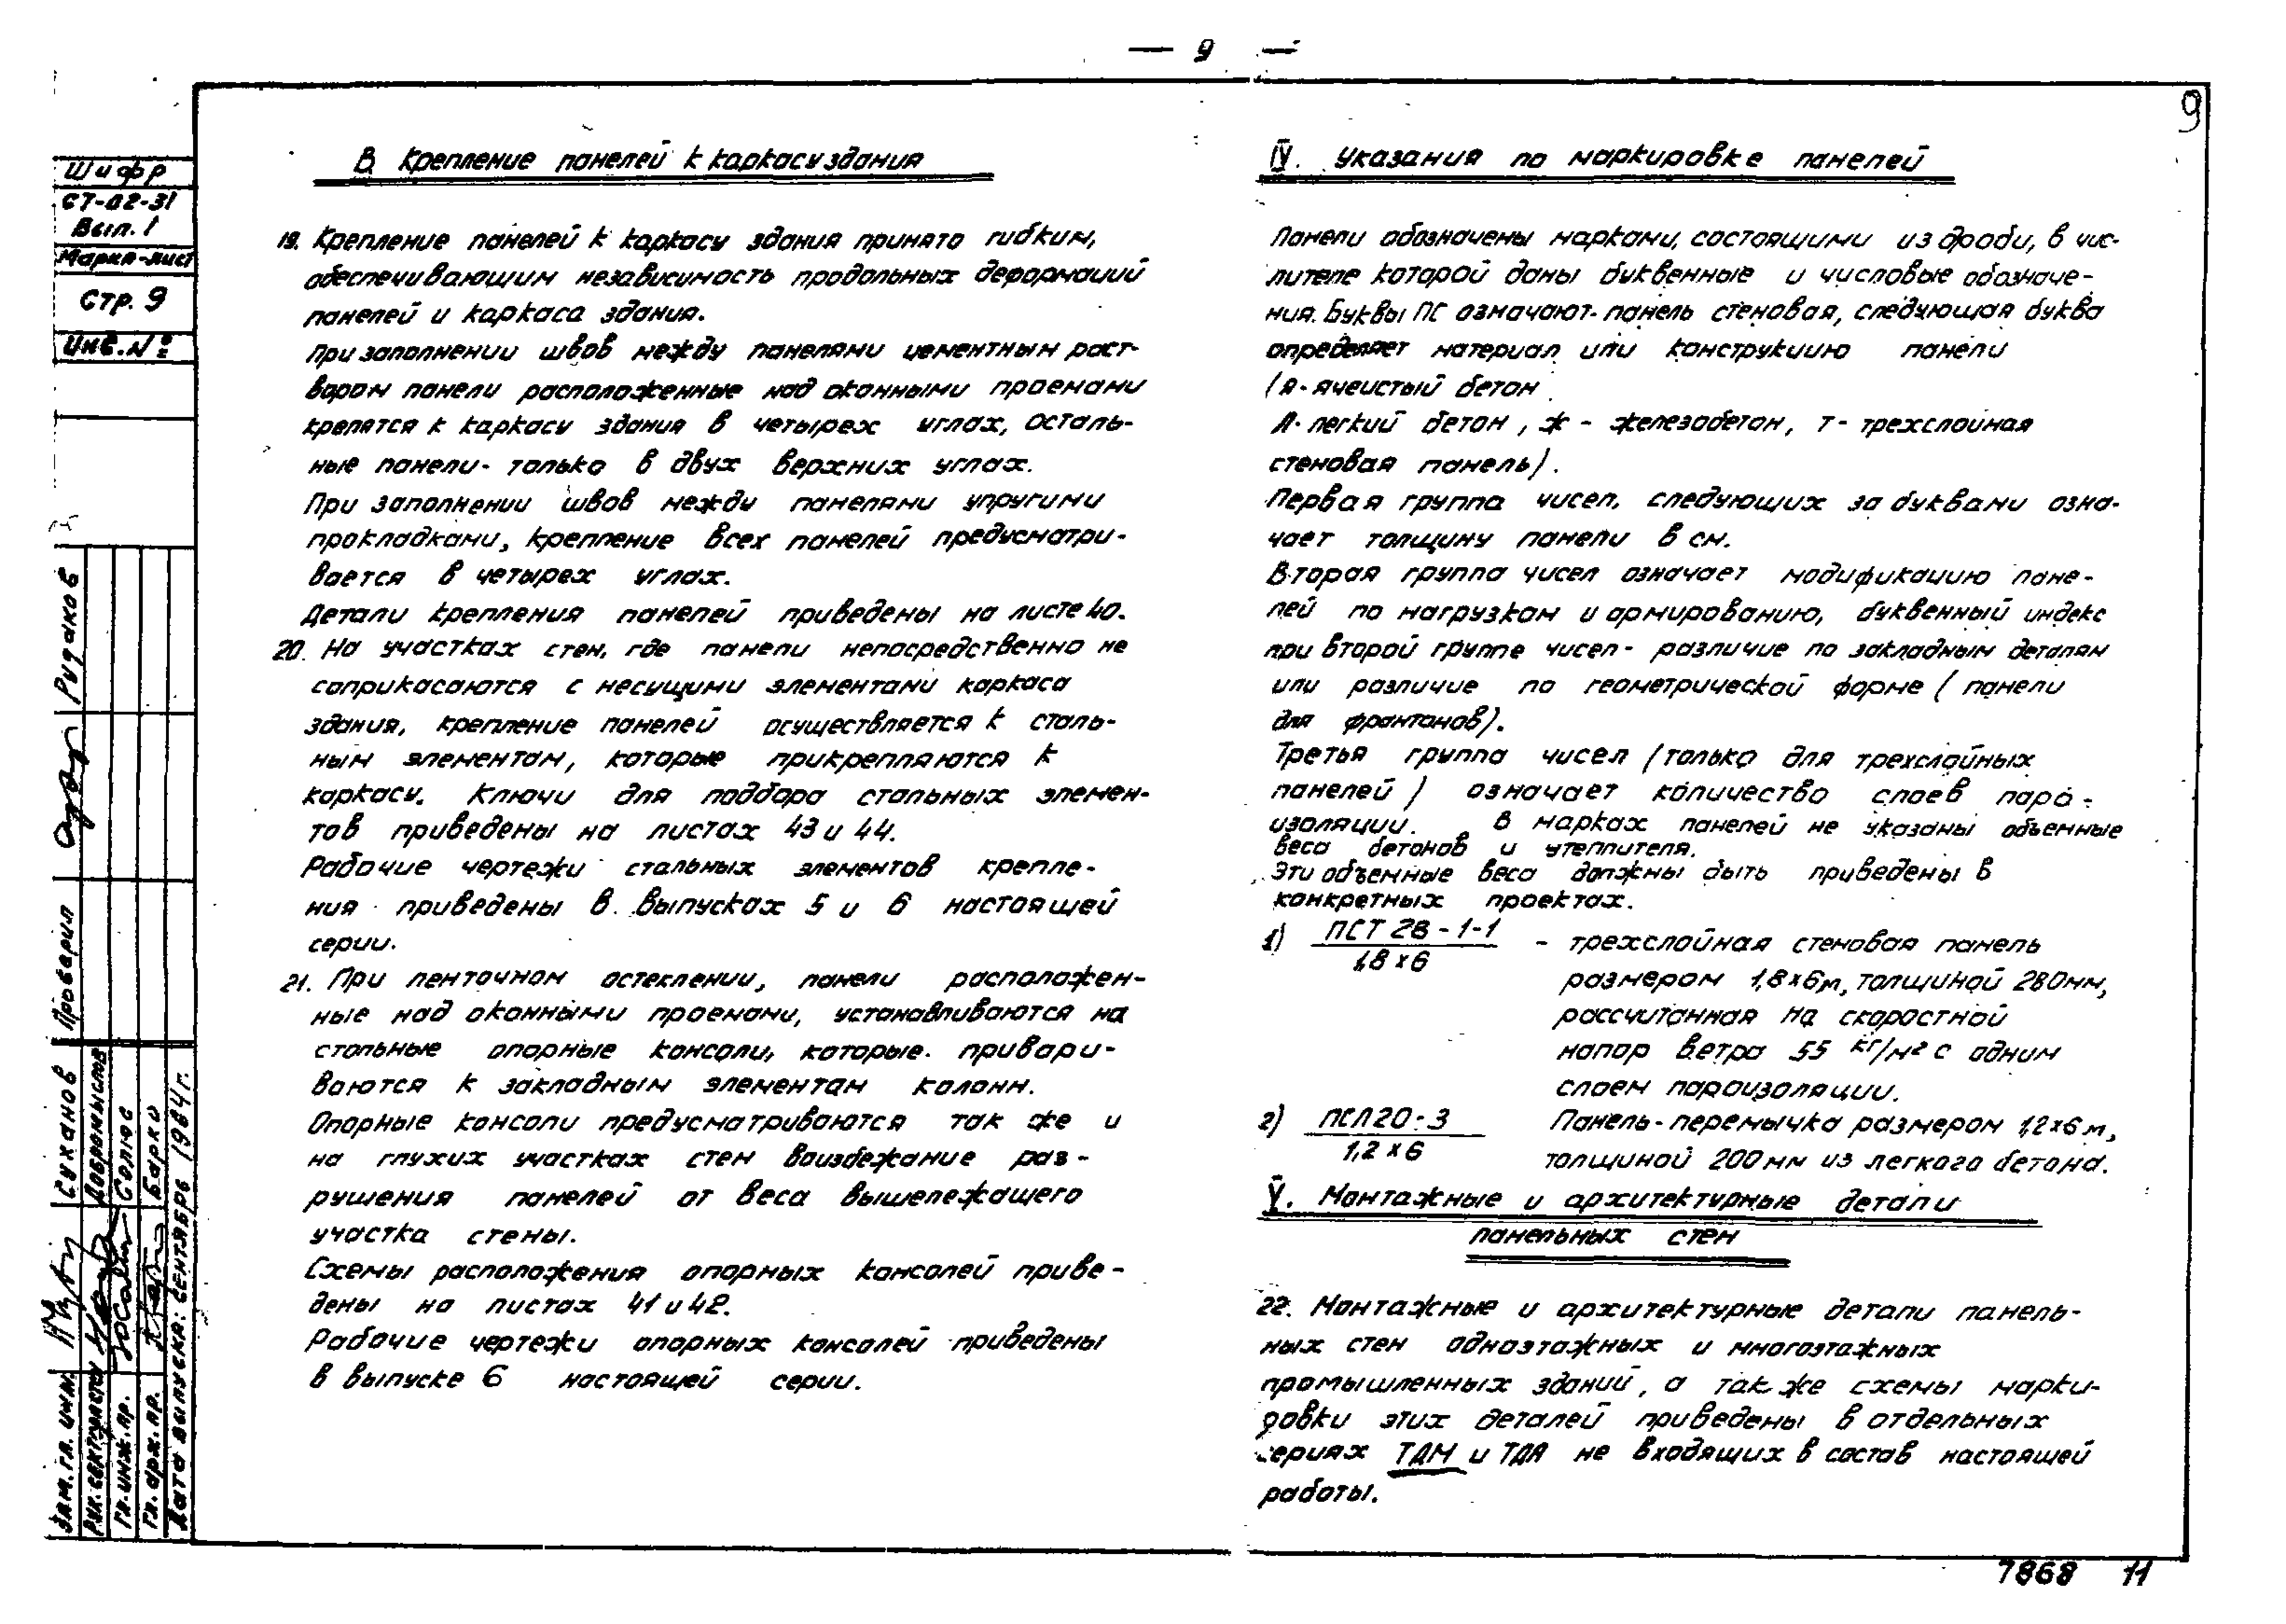 — 9 —
9
Шифр
СТ-02-31
Вып. 1
Марка-лист
Стр. 9
Инв. №
В. Крепление панелей к каркасу здания
19. Крепление панелей к каркасу здания принято гибким,
обеспечивающим независимость продольных деформаций
панелей и каркаса здания.
При заполнении швов между панелями цементным раст-
вором панели расположенные над оконными проемами
крепятся к каркасу здания в четырех углах, осталь-
ные панели- только в двух верхних углах.
При заполнении швов между панелями упругими
прокладками, крепление всех панелей предусматри-
вается в четырех углах.
Детали крепления панелей приведены на листе 40.
20. На участках стен, где панели непосредственно не
соприкасаются с несущими элементами каркаса
здания, крепление панелей осуществляется к сталь-
ным элементам, которые прикрепляются к
каркасу. Ключи для подбора стальных элемен-
тов приведены на листах 43 и 44.
Рабочие чертежи стальных элементов крепле-
ния приведены в выпусках 5 и 6 настоящей
серии.
21. При ленточном остеклении, панели расположен-
ные над оконными проемами, устанавливаются на
стальные опорные консоли, которые привари-
ваются к закладным элементам колонн.
Опорные консоли предусматриваются так же и
на глухих участках стен воизбежание раз-
рушения панелей от веса вышележащего
участка стены.
Схемы расположения опорных консолей приве-
дены на листах 41 и 42.
Рабочие чертежи опорных консолей приведены
в выпуске 6 настоящей серии.
IV. Указания по маркировке панелей
Панели обозначены марками, состоящими из дроби, в чис-
лителе которой даны буквенные и числовые обозначе-
ния. Буквы ПС означают- панель стеновая, следующая буква
определяет материал или конструкцию панели
(Я- ячеистый бетон
Л- легкий бетон, Ж - железобетон, Т- трехслойная
стеновая панель).
Первая группа чисел, следующих за буквами озна-
чает толщину панели в см.
Вторая группа чисел означает модификацию пане-
лей по нагрузкам и армированию, буквенный индекс
при второй группе чисел- различие по закладным деталям
или различие по геометрической форме (панели
для фронтонов).
Третья группа чисел (только для трехслойных
панелей) означает количество слоев паро-
изоляции. В марках панелей не указаны объемные
веса бетонов и утеплителя.
Эти объемные веса должны быть приведены в
конкретных проектах.
1) ПСТ 28-1-1 - трехслойная стеновая панель
1,8 х 6
размером 1,8х6м, толщиной 280мм,
рассчитанная на скоростной
напор ветра 55 кг/м² с одним
слоем пароизоляции.
2) ПСЛ20-3 Панель-перемычка размером 1,2х6м,
1,2 х 6 толщиной 200мм из легкого бетона.
V. Монтажные и архитектурные детали
панельных стен
22. Монтажные и архитектурные детали панель-
ных стен одноэтажных и многоэтажных
промышленных зданий, а так же схемы марки-
ровки этих деталей приведены в отдельных
сериях ТДМ и ТДА не входящих в состав настоящей
работы.
Зам. гл. инж. Суханов Проверил Рудаков
Рук. сектора Добромыслов
Гл. инж. пр.
Гл. арх. пр.
Дата выпуска: сентябрь 1964г.
7868 11